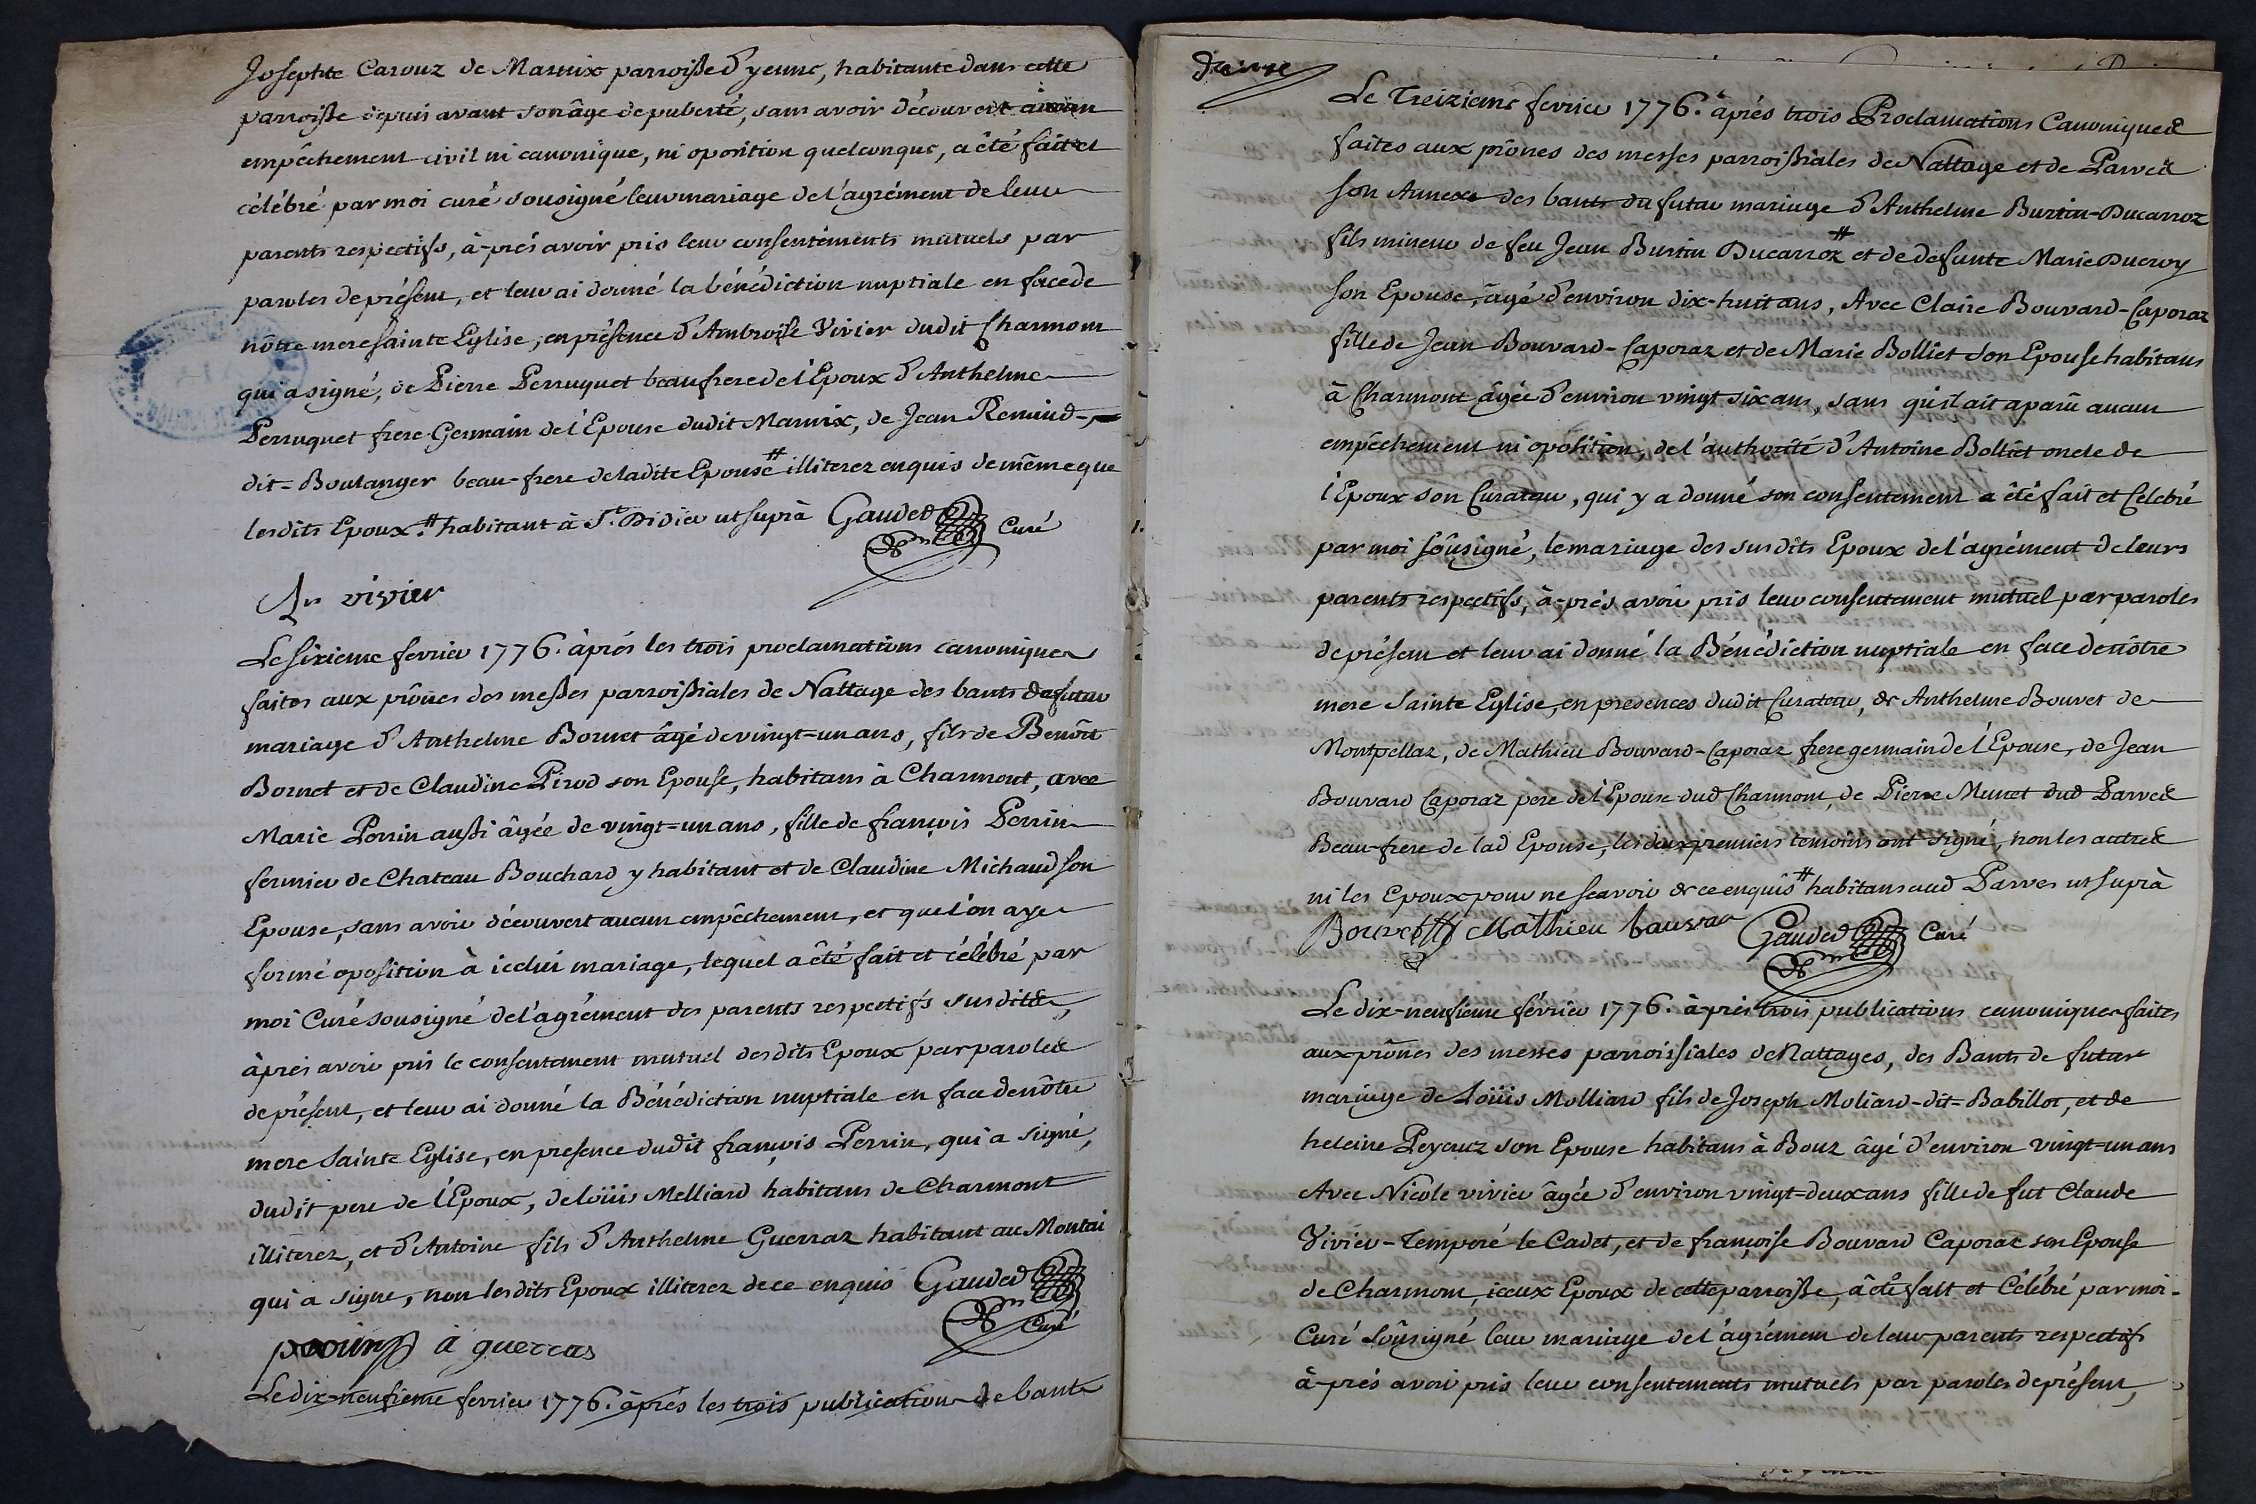 Josephte Carouz de Marnix parroisse d'yenne, habitante dans cette
parroisse depuis avant son âge de puberté, sans avoir découvert aucun
empêchement civil ni canonique, ni oposition quelconque, a êté fait et
célébré par moi curé sousigné leur mariage de l'agrément de leur
parents respectifs, à-prés avoir pris leur consentéments mutuels par
paroles de présent, et leur ai donné la bénédiction nuptiale en face de
nôtre mere sainte Eglise, en présence d'Ambroise Vivier dudit Charmont
qui a signé, de Pierre Perruquet beaufrere de l'Epoux d'Anthelme
Perruquet frere Germain de l'Epouse dudit Marnix, de Jean Renaud-
dit-Boulanger beau-frere de ladite Epouse # illiterez enquis de même que
lesdits Epoux. # habitant à St. Didier ut suprà Gaudet Curé
An vivier
Le sixieme fevrier 1776. àprés les trois proclamations canoniques
faites aux prônes des messes parroissiales de Nattage des bants du futur
mariage d'Anthelme Bornet âgé de vingt=un ans, fils de Benôit
Bornet et de Claudine Pirod son Epouse, habitans à Charmont, avec
Marie Perrin aussi âgée de vingt=un ans, fille de françois Perrin
fermier de Chateau Bouchard y habitant et de Claudine Michaud son
Epouse, sans avoir découvert aucun empêchement, et que l'on aye
formé oposition à icelui mariage, lequel a êté fait et célébré par
moi Curé sousigné de l'agrément des parents respectifs susdits,
àprés avoir pris le consentement mutuel desdits Epoux par paroles
de présent, et leur ai donné la Bénédiction nuptiale en face de nôtre
mere Sainte Eglise, en presence dudit françois Perrin, qui a signé,
dudit pere de l'Epoux, de Loüis Molliard habitans de Charmont
illiterez, et d'Antoine fils d'Anthelme Guerraz habitant au Montai
qui a signe, non lesdits Epoux illiterez de ce enquis Gaudet
Curé
perrin à guerras
Le dix-neufieme fevrier 1776. àprés les trois publications de bants
Le Treizieme fevrier 1776. àprés trois Proclamations Canoniques
faites aux prônes des messes parroissiales de Nattage et de Parves
son Annexe des bants du futur mariage d'Anthelme Burtin-Ducarroz
fils mineur de feu Jean Burtin Ducarroz # et de defunte Marie Ducroy
son Epouse, âgé d'environ dix-huit ans, Avec Claire Bouvard-Caporaz
fille de Jean Bouvard-Caporaz et de Marie Bolliet son Epouse habitans
à Charmont âgée d'environ vingt six ans, sans qu'il ait aparû aucun
empêchement ni oposition, de l'authorité d'Antoine Bolliet oncle de
l'Epoux son Curateur, qui y a donné son consentement a êté fait et Celebré
par moi soûsigné, le mariage des susdits Epoux de l'agrément de leurs
parents respectifs, à-prés avoir pris leur consentement mutuel par paroles
de présent et leur ai donné la Bénédiction nuptiale en face de nôtre
mere Sainte Eglise, en presences dudit Curateur, de Anthelme Bouvet de
Montpellaz, de Mathieu Bouvard-Caporaz frere germain de l'Epouse, de Jean
Bouvard Caporaz pere de l'Epouse dud Charmont, de Pierre Munet dud Parves
Beau-frere de lad Epouse, les deux premiers temoins ont signé, non les autres
ni les Epoux pour ne scavoir de ce enquis # habitans aud Parves ut suprà
Bouvet Mathieu bauvar Gaudet Curé
Le dix-neufieme février 1776. à-prés trois publications canoniques faites
aux prônes des messes parroissiales de Nattages, des Bants de futur
mariage de Loüis Molliard fils de Joseph Moliard-dit=Babillot, et de
heleine Peycruz son Epouse habitans à Bouz âgé d'environ vingt=un ans
Avec Nicole vivier âgée d'environ vingt=deux ans fille de fut Claude
Vivier-Temporé le Cadet, et de françoise Bouvard Caporaz son Epouse
de Charmont, iceux Epoux de cette parroisse, à êté fait et Célébré par moi-
Curé soûsigné leur mariage de l'agrément de leur parents respectifs
à-prés avoir pris leur consentements mutuels par paroles de présent,